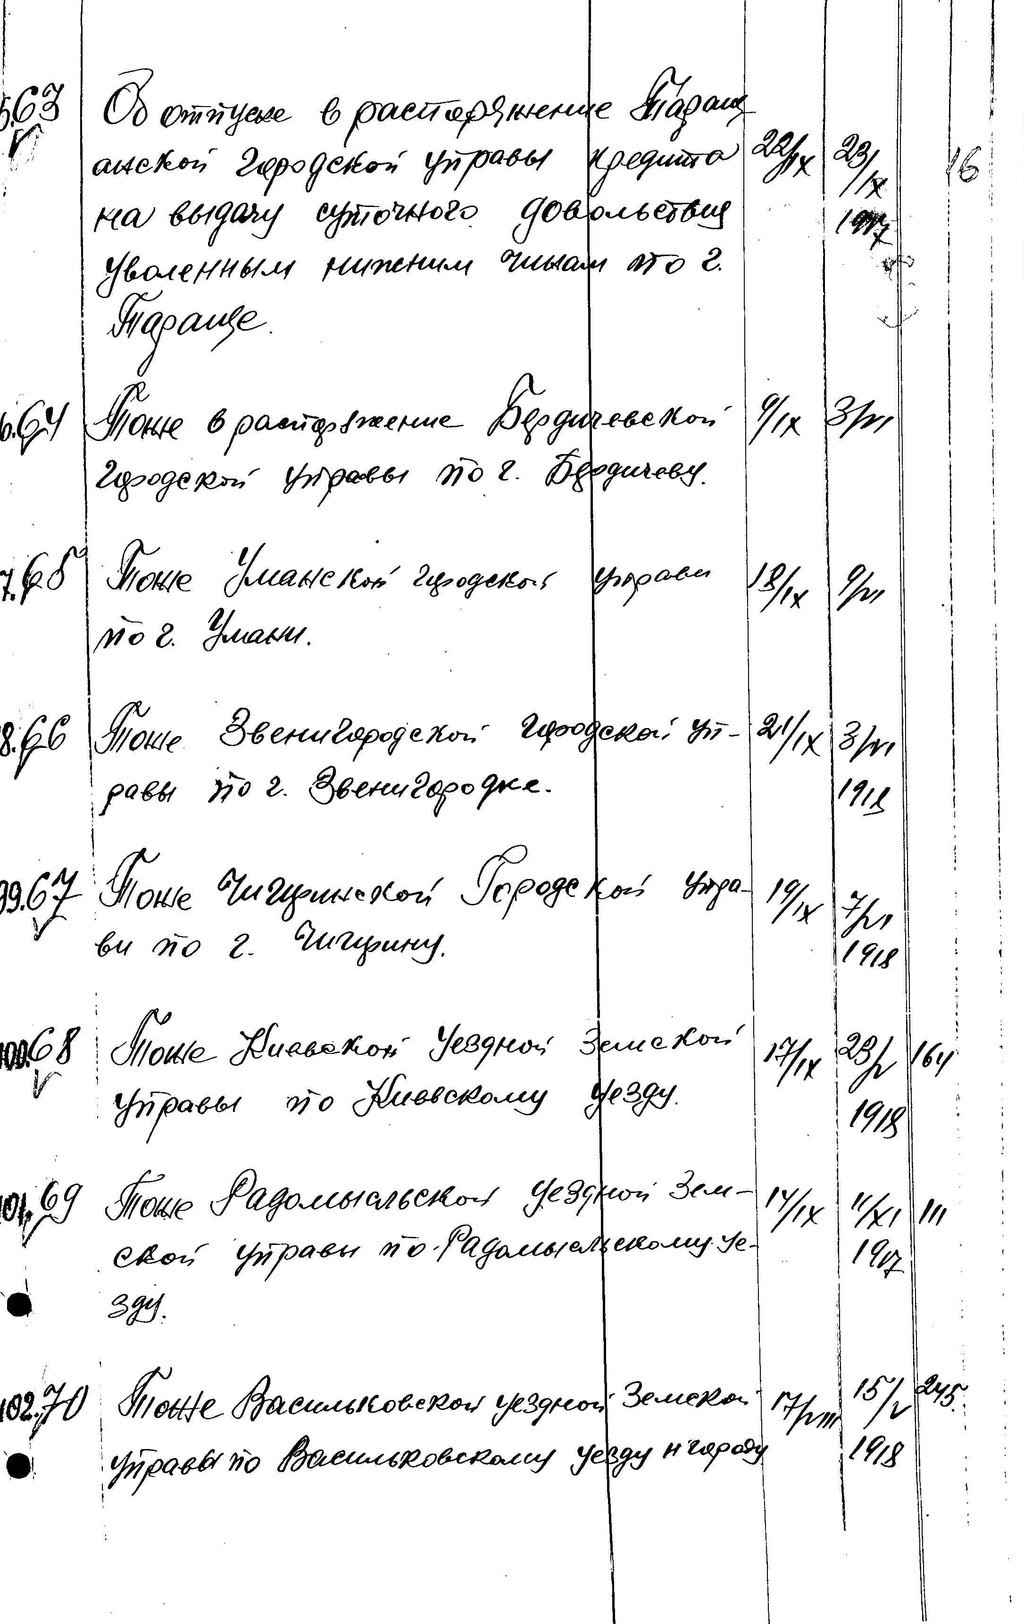 63 Об отпуске в распоряжение Таращ
анской городской управы кредита 22/IX 23/IX 16
на выдачу суточного довольствия 1917
уволенным нижним чинам по г.
Тараще.
64 Тоже в распоряжение Бердичевской 9/IX 3/VI
городской управы по г. Бердичеву.
65 Тоже Уманской городской управы 18/IX 9/VI
по г. Умани.
8.66 Тоже Звенигородской городской уп- 21/IX 3/VI
равы по г. Звенигородке. 1918
99.67 Тоже Чигиринской Городской упра- 19/IX 7/VI
вы по г. Чигирину. 1918
100.68 Тоже Киевской уездной земской 17/IX 23/V 164
управы по Киевскому уезду. 1918
101.69 Тоже Радомысльской уездной зем- 14/IX 11/XI 111
ской управы по Радомысльскому уе- 1917
зду.
102.70 Тоже Васильковской уездной Земской 17/VIII 15/V 245.
управы по Васильковскому уезду и городу 1918